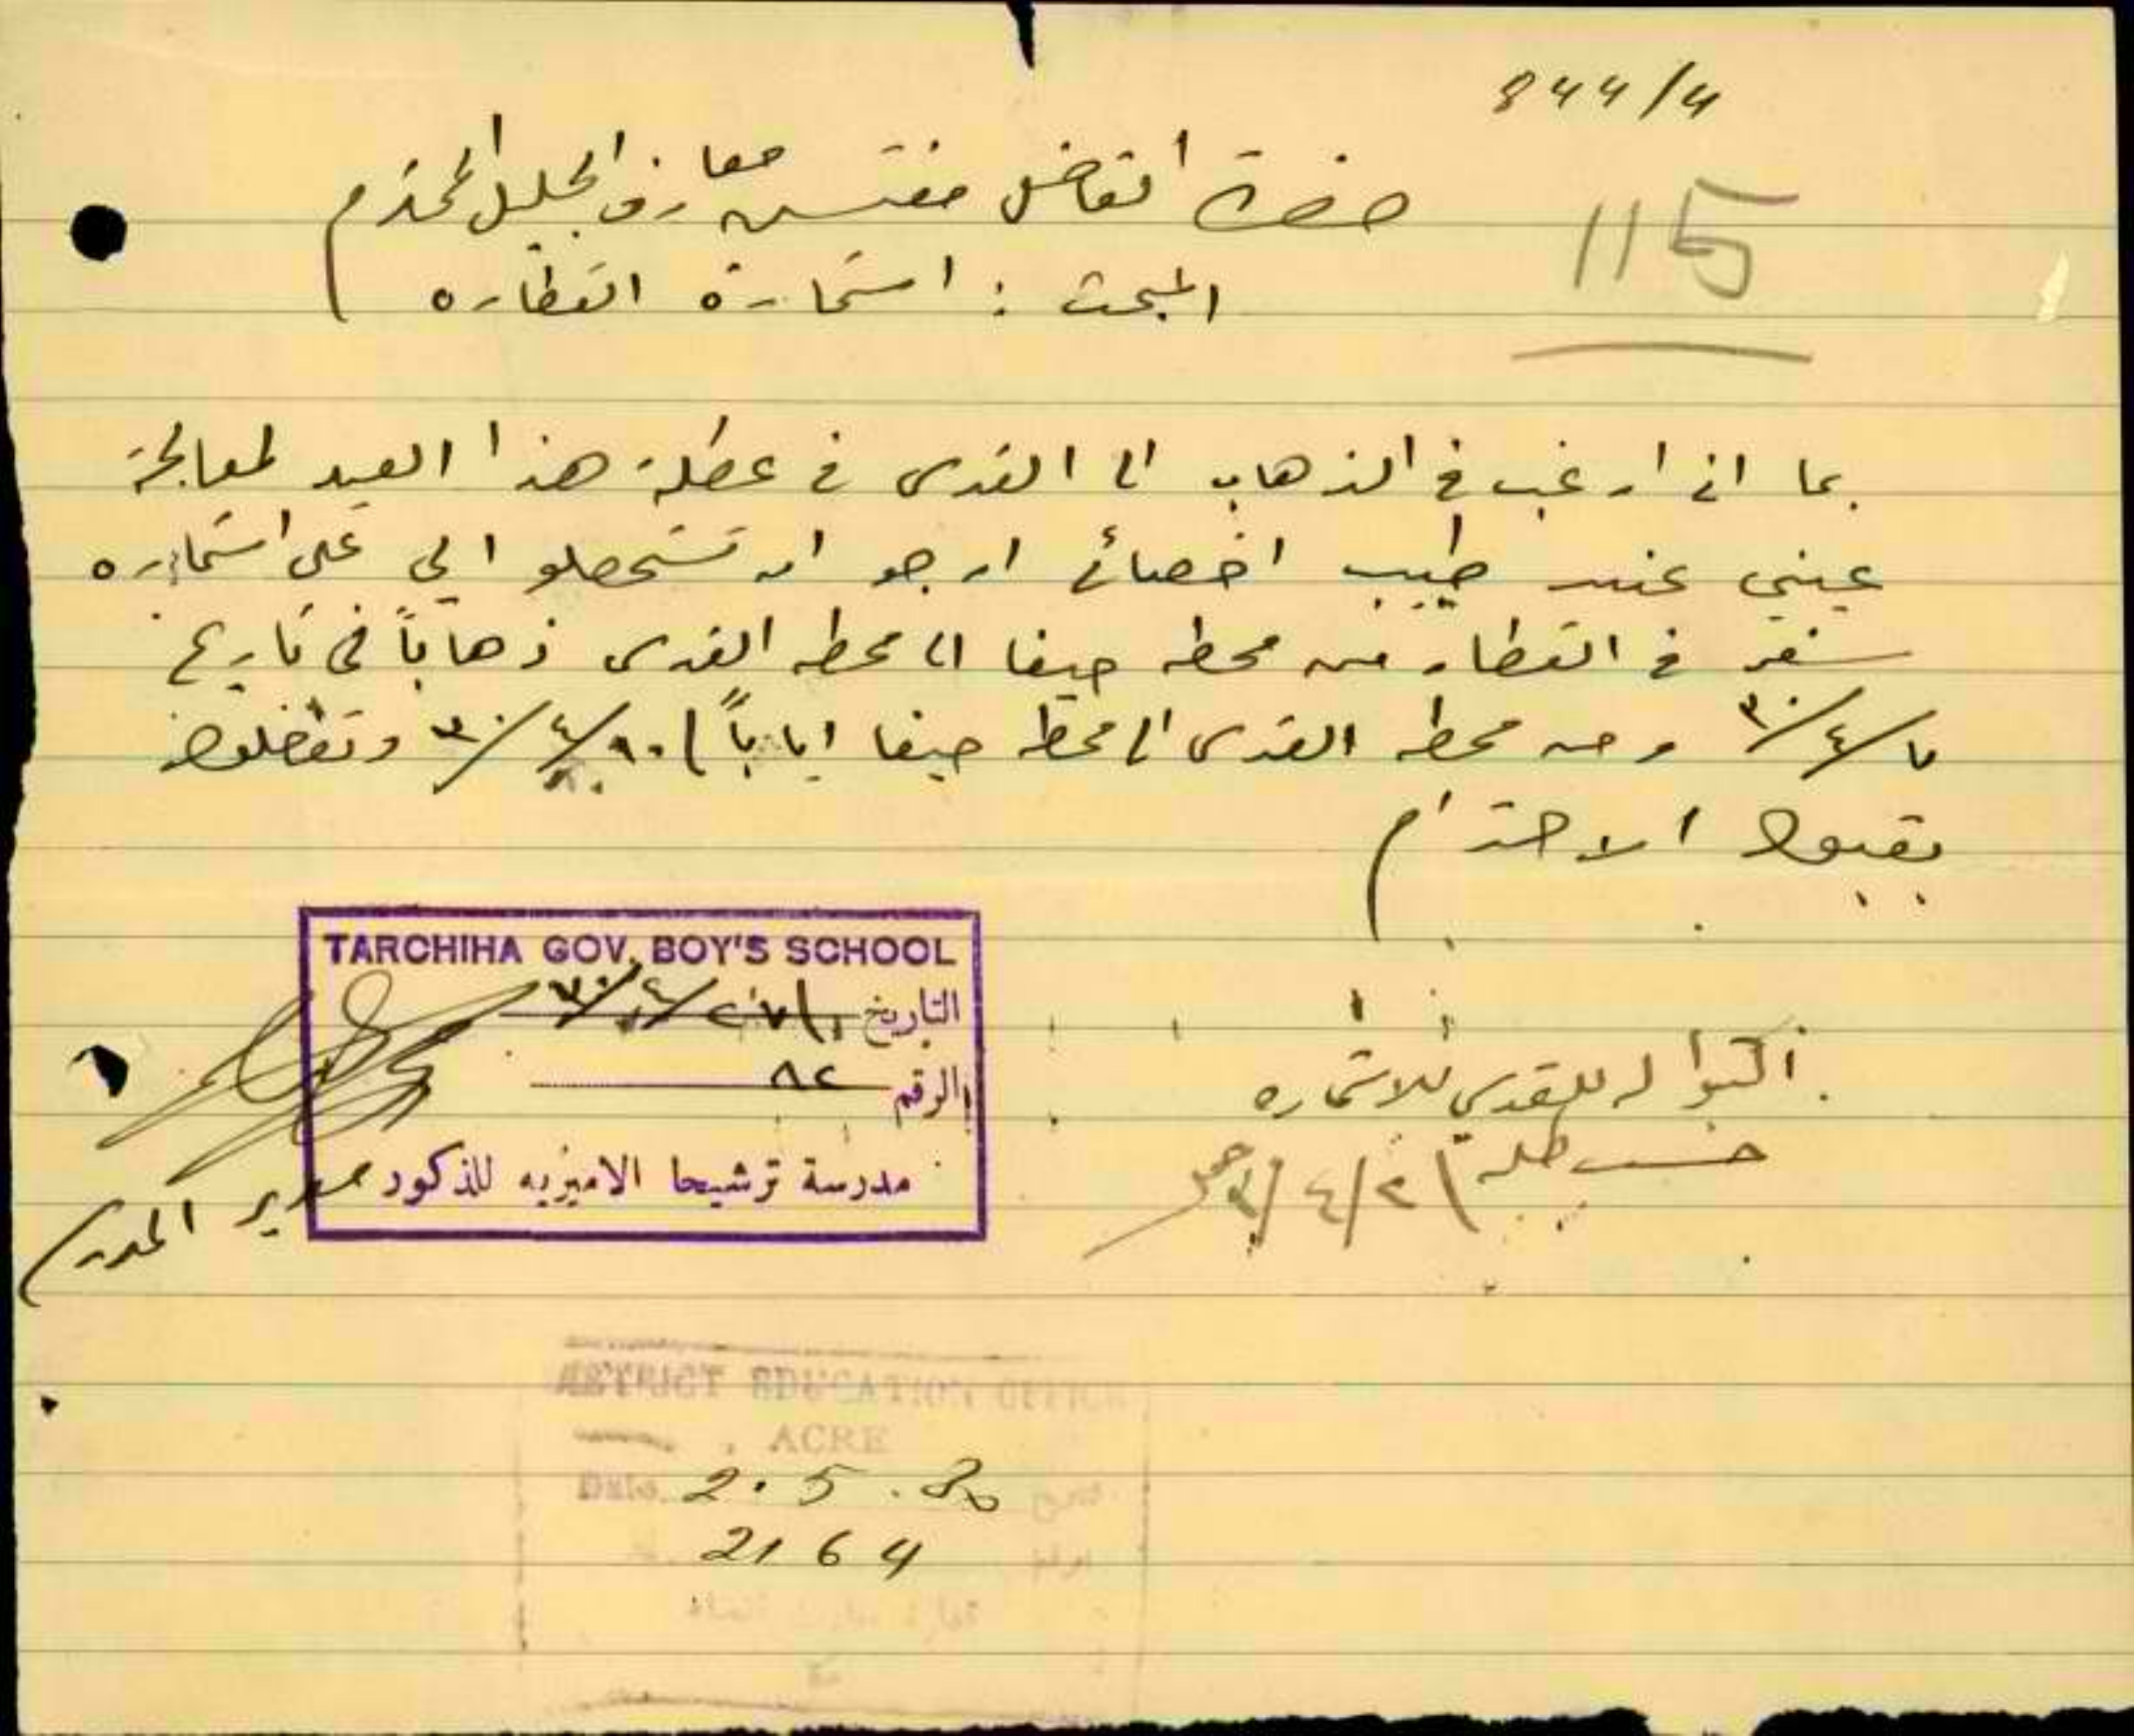 844/4
115
حضرة الفاضل مفتش معارف الجليل المحترم
المبحث : استمارة القطاره
بما اني ارغب في الذهاب الى القدس في عطلة هذا العيد لمعالجة
عيني عند طبيب اخصائي ارجو ان تستحصلو الي على استماره
سفر في القطار من محطه حيفا الى محطه القدس ذهاباً في تاريخ
٣٠/٤/ ومن محطه القدس الى محطه حيفا اياباً ٣٠/٤/ وتفضلوا
بقبول الاحترام
TARCHIHA GOV. BOY'S SCHOOL
التاريخ ٣٠/٤/٢٧
الرقم ٨٢
مدرسة ترشيحا الاميريه للذكور
مدير المدرسة
اكتبوا له للقدس للاستماره
حسب طلبه
DISTRICT EDUCATION OFFICE
ACRE
Date 2.5.30
2164